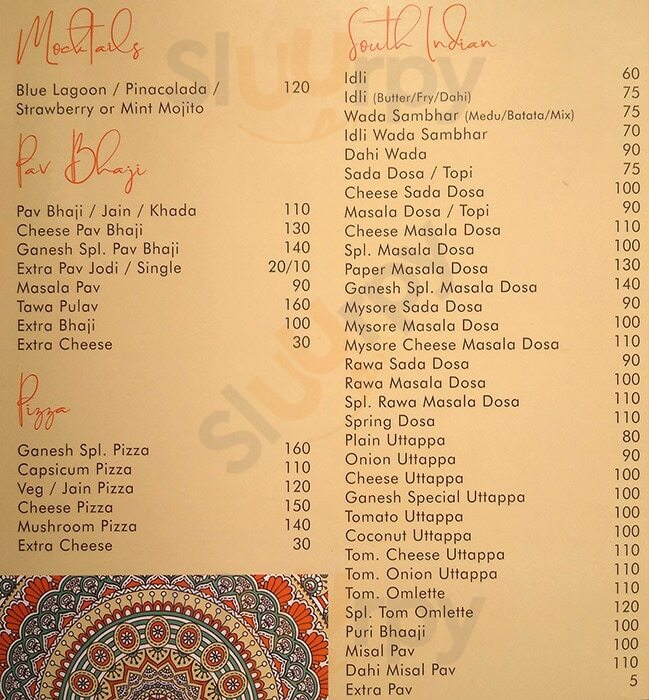 Mocktails
Blue Lagoon / Pinacolada / 120
Strawberry or Mint Mojito
Pav Bhaji
Pav Bhaji / Jain / Khada 110
Cheese Pav Bhaji 130
Ganesh Spl. Pav Bhaji 140
Extra Pav Jodi / Single 20/10
Masala Pav 90
Tawa Pulav 160
Extra Bhaji 100
Extra Cheese 30
Pizza
Ganesh Spl. Pizza 160
Capsicum Pizza 110
Veg / Jain Pizza 120
Cheese Pizza 150
Mushroom Pizza 140
Extra Cheese 30
South Indian
Idli 60
Idli (Butter/Fry/Dahi) 75
Wada Sambhar (Medu/Batata/Mix) 75
Idli Wada Sambhar 70
Dahi Wada 90
Sada Dosa / Topi 75
Cheese Sada Dosa 100
Masala Dosa / Topi 90
Cheese Masala Dosa 110
Spl. Masala Dosa 100
Paper Masala Dosa 130
Ganesh Spl. Masala Dosa 140
Mysore Sada Dosa 90
Mysore Masala Dosa 100
Mysore Cheese Masala Dosa 110
Rawa Sada Dosa 90
Rawa Masala Dosa 100
Spl. Rawa Masala Dosa 110
Spring Dosa 110
Plain Uttappa 80
Onion Uttappa 90
Cheese Uttappa 100
Ganesh Special Uttappa 100
Tomato Uttappa 100
Coconut Uttappa 100
Tom. Cheese Uttappa 110
Tom. Onion Uttappa 110
Tom. Omlette 110
Spl. Tom Omlette 120
Puri Bhaaji 100
Misal Pav 100
Dahi Misal Pav 110
Extra Pav 5
Sluurpy
sluurpy